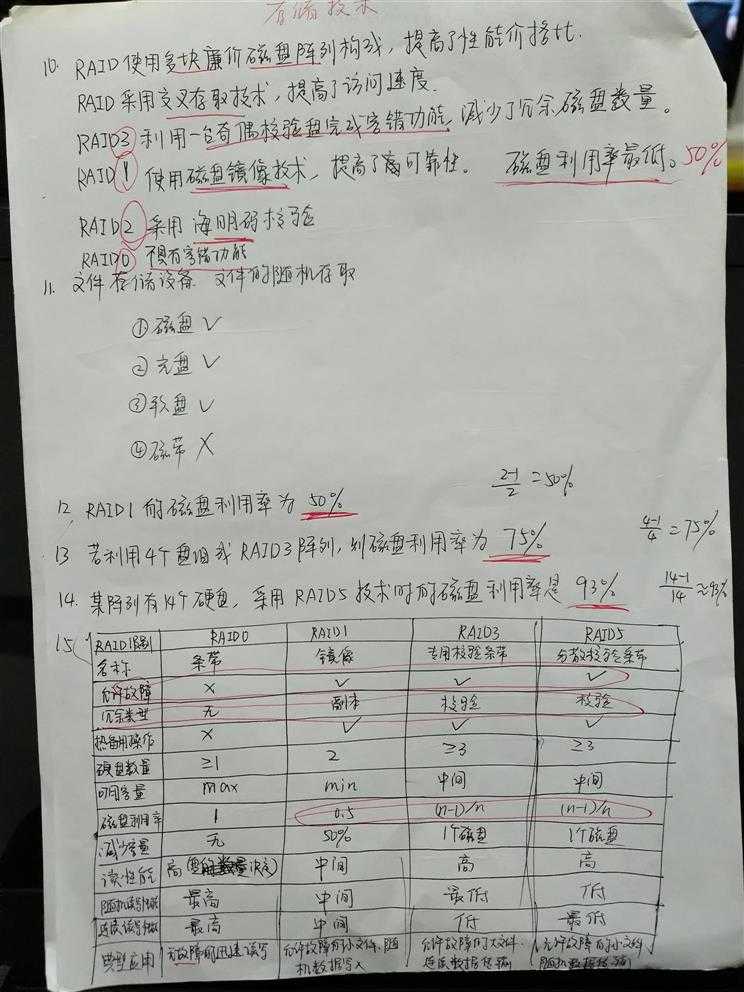 存储技术
10. RAID使用多块廉价磁盘阵列构成，提高了性能价格比.
RAID采用交叉存取技术，提高了访问速度.
RAID3利用一台奇偶校验盘完成容错功能，减少了冗余磁盘数量。
RAID1使用磁盘镜像技术，提高了可靠性。 磁盘利用率最低。50%
RAID2采用海明码校验
RAID0不具有容错功能
11. 文件存储设备 文件的随机存取
①磁盘 ✓
②光盘 ✓
③软盘 ✓
④磁带 ✗
2-1/2 = 50%
12. RAID1的磁盘利用率为 50%
4-1/4 = 75%
13 若利用4个盘组成RAID3阵列，则磁盘利用率为 75%
14. 某阵列有14个硬盘，采用RAID5技术时的磁盘利用率是 93% 14-1/14 ≈93%
15. RAID级别 RAID0 RAID1 RAID3 RAID5
名称 条带 镜像 专用校验条带 分散校验条带
允许故障 × ✓ ✓ ✓
冗余类型 无 副本 校验 校验
热备用操作 × ✓ ✓ ✓
硬盘数量 ≥1 2 ≥3 ≥3
可用容量 max min 中间 中间
磁盘利用率 1 0.5 (n-1)/n (n-1)/n
减少容量 无 50% 1个磁盘 1个磁盘
读性能 高(盘的数量决定) 中间 高 高
随机读写性能 最高 中间 最低 低
连续读写性能 最高 中间 低 最低
典型应用 无故障的迅速读写 允许故障的小文件、随机数据写入 允许故障的大文件、连续数据传输 允许故障的小文件、随机数据传输